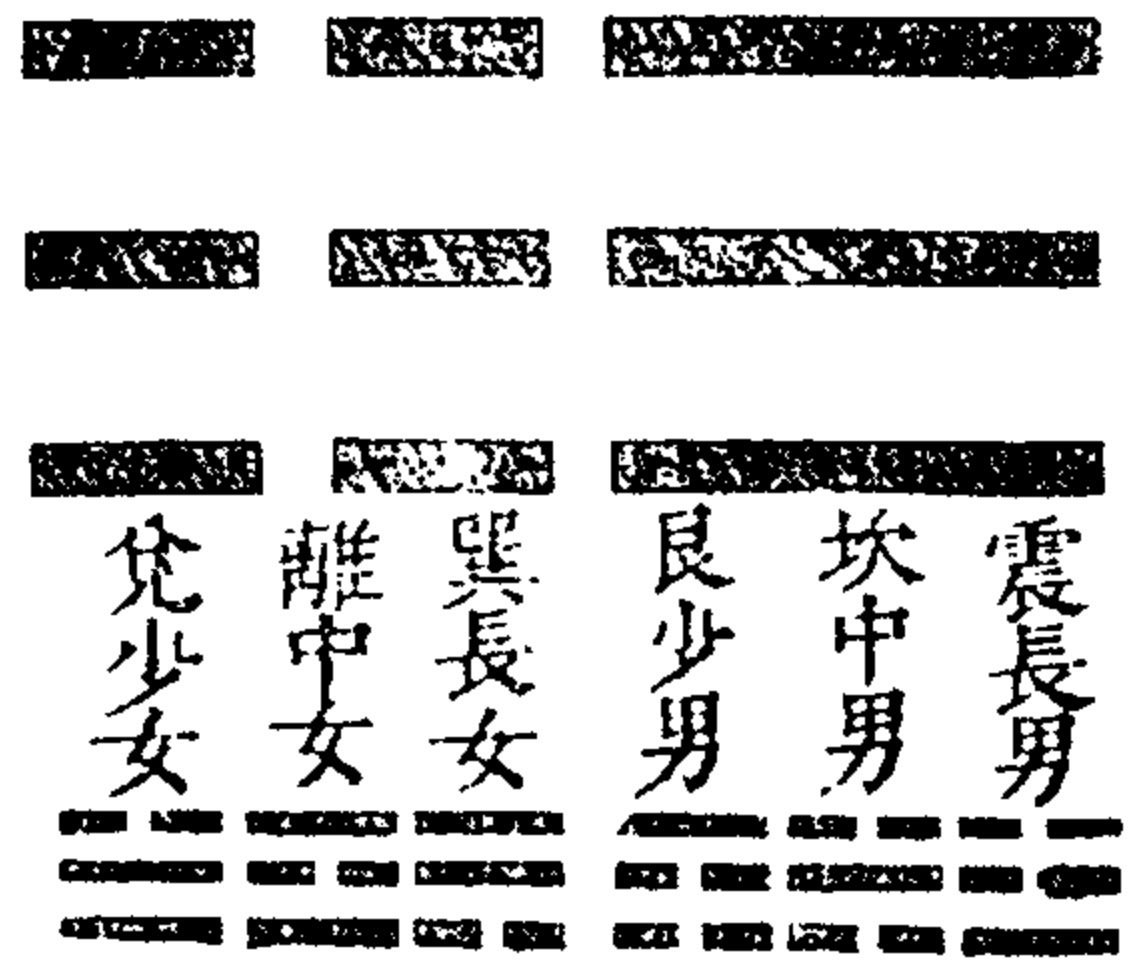 震長男
坎中男
艮少男
巽長女
離中女
兌少女